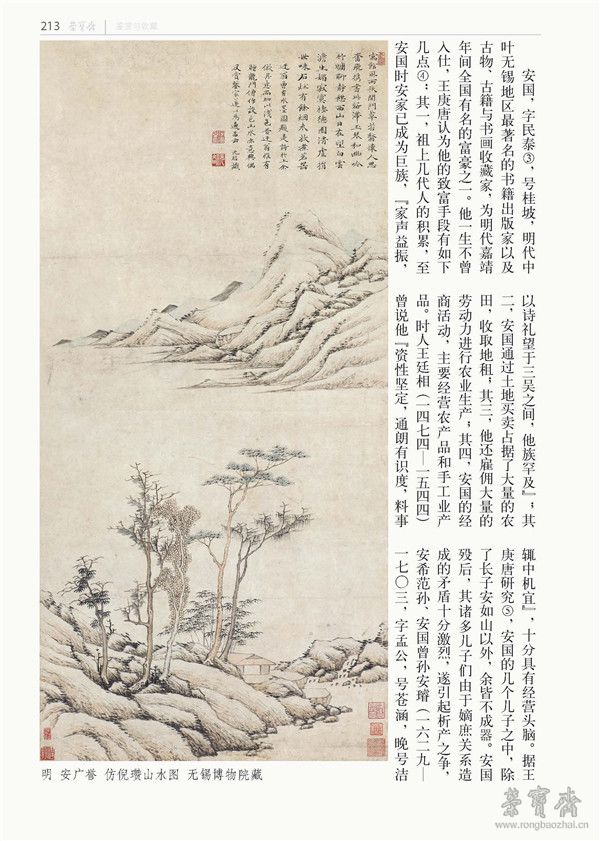 213 荣宝斋 鉴赏与收藏
安国，字民泰③，号桂坡，明代中
叶无锡地区最著名的书籍出版家以及
古物、古籍与书画收藏家，为明代嘉靖
年间全国有名的富豪之一。他一生不曾
入仕，王庚唐认为他的致富手段有如下
几点④：其一，祖上几代人的积累，至
安国时安家已成为巨族，『家声益振，
以诗礼望于三吴之间，他族罕及』；其
二，安国通过土地买卖占据了大量的农
田，收取地租；其三，他还雇佣大量的
劳动力进行农业生产；其四，安国的经
商活动，主要经营农产品和手工业产
品。时人王廷相（一四七四—一五四四）
曾说他『资性坚定，通朗有识度，料事
辄中机宜』，十分具有经营头脑。据王
庚唐研究⑤，安国的几个儿子之中，除
了长子安如山以外，余皆不成器。安国
殁后，其诸多儿子们由于嫡庶关系造
成的矛盾十分激烈，遂引起析产之争，
安希范孙、安国曾孙安璿（一六二九—
一七〇三，字孟公，号苍涵，晚号洁
明 安广誉 仿倪瓒山水图 无锡博物院藏
荣宝斋
www.rongbaozhai.cn